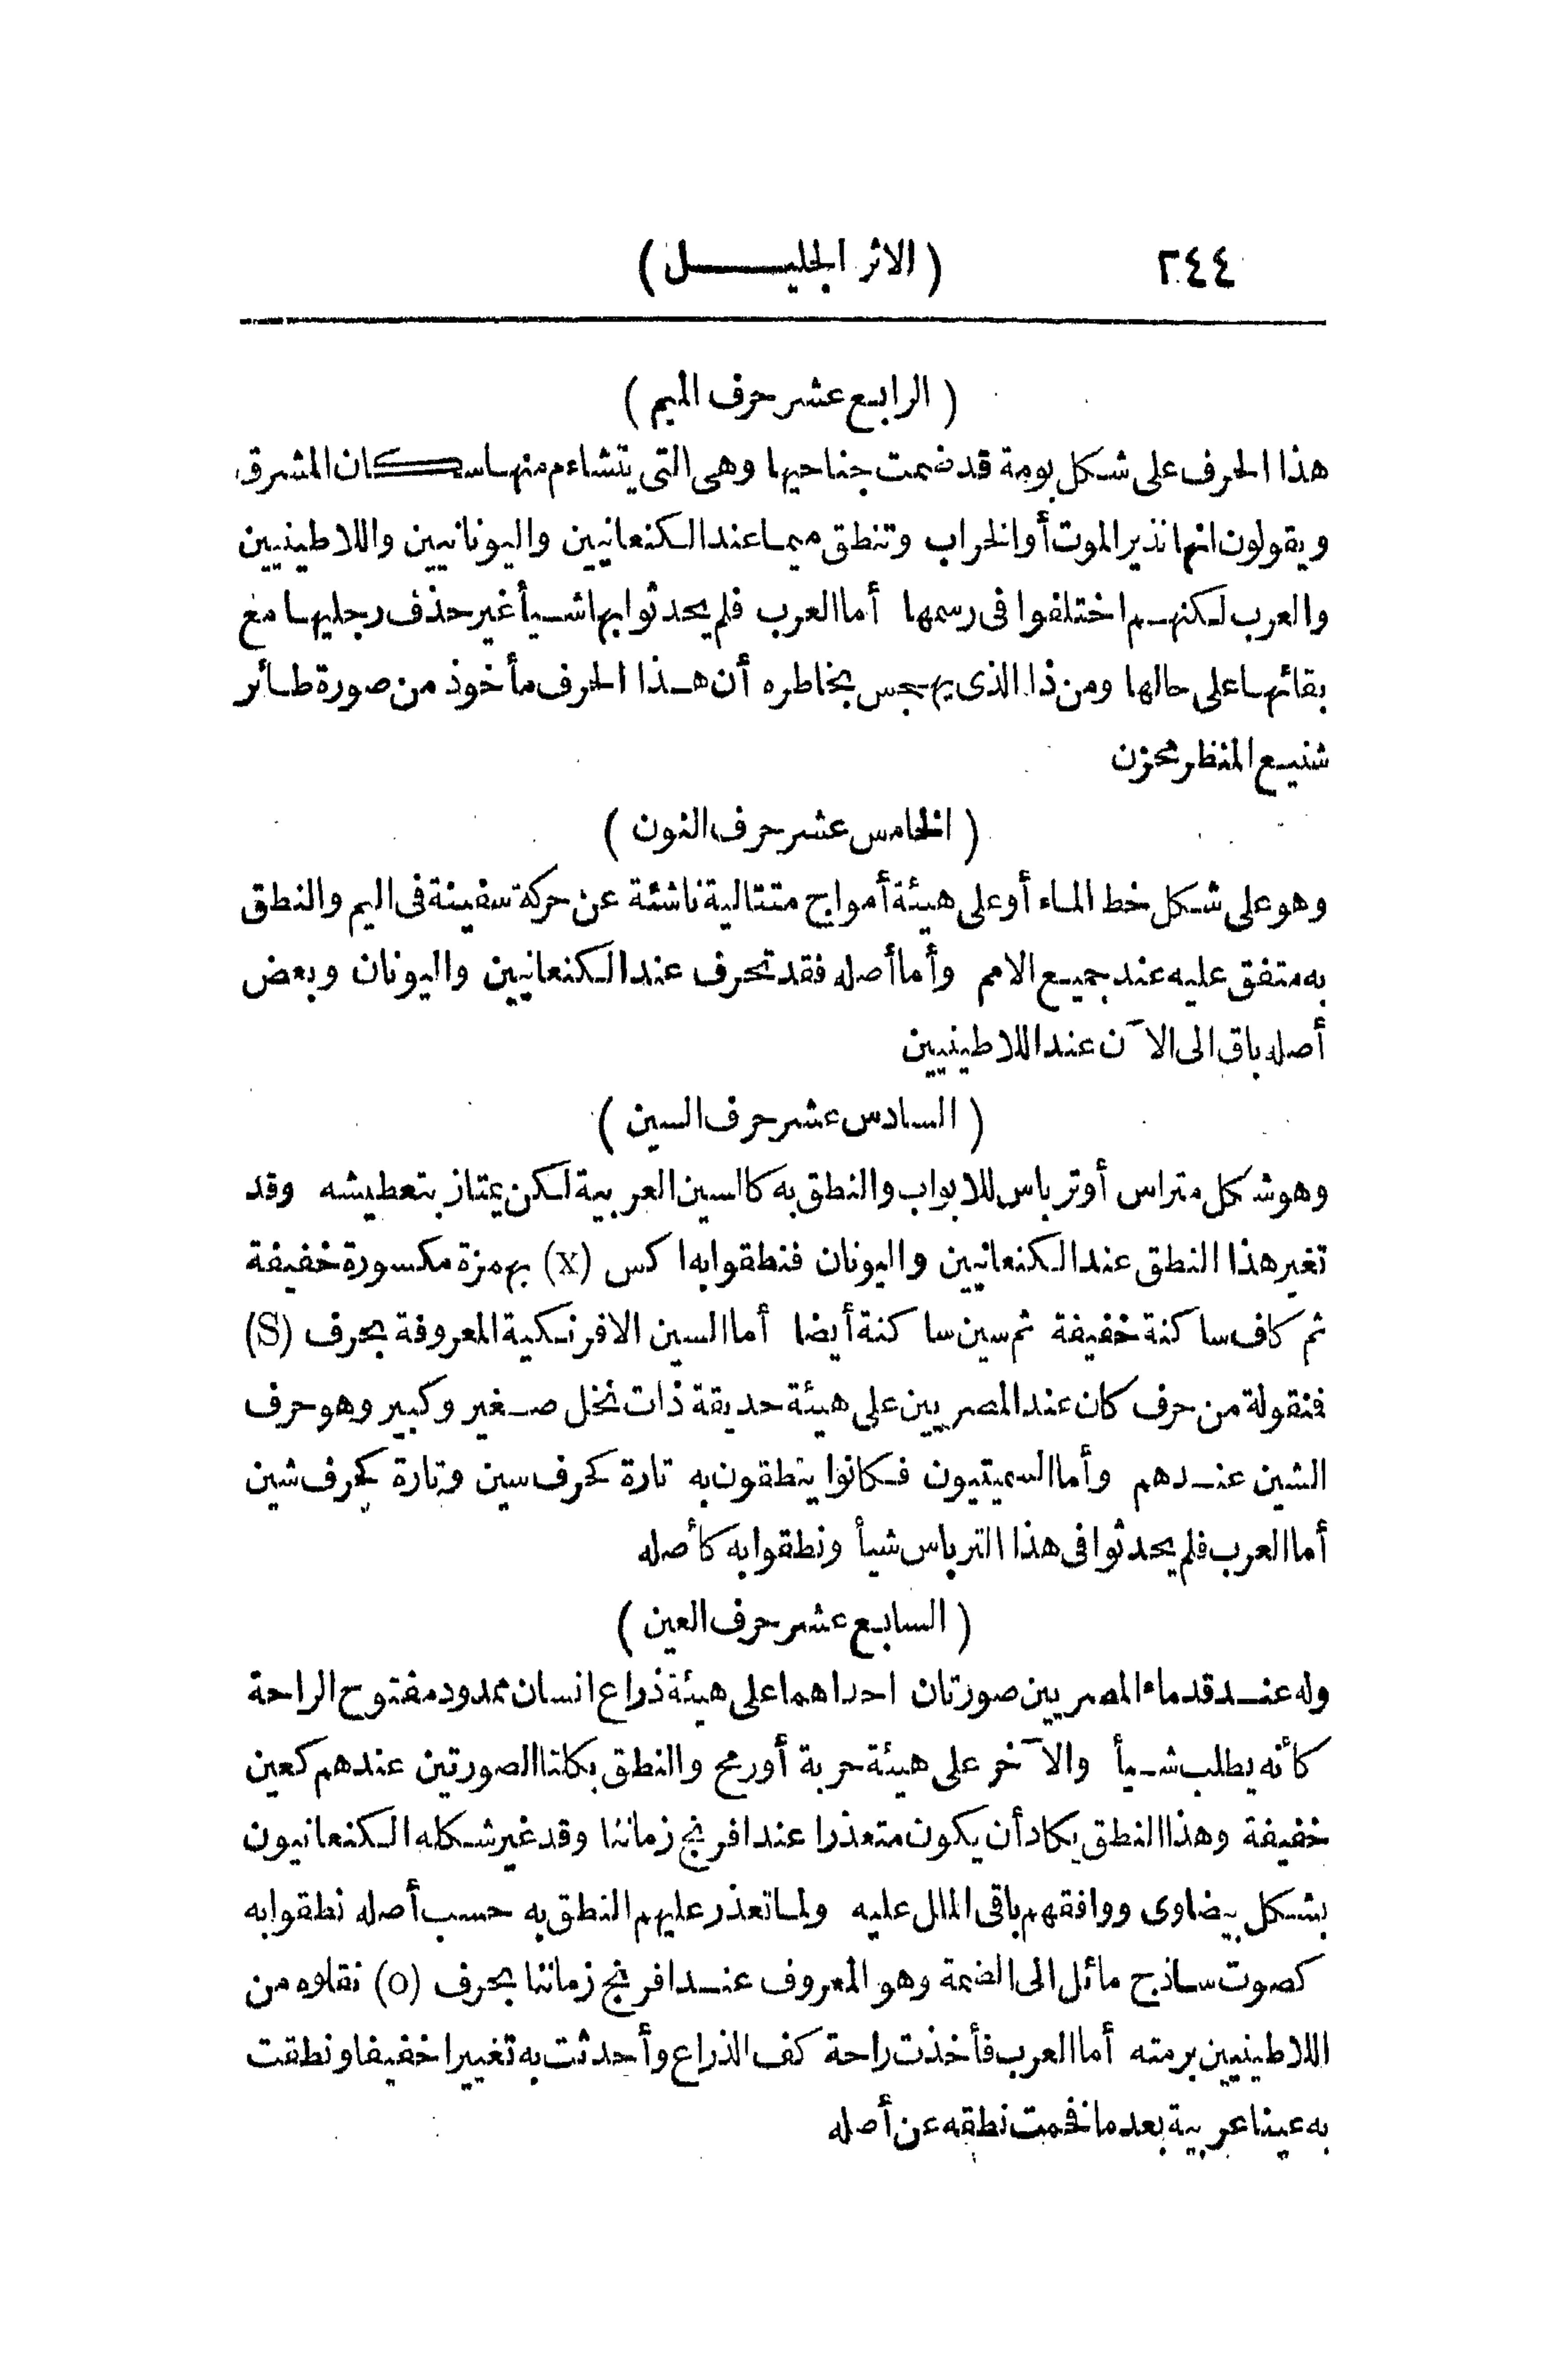 ٢٤٤ (الاثر الجليل)
(الرابع عشر حرف الميم)
هذا الحرف على شكل بومة قد ضمت جناحيها وهى التى يتشاءم منها سكان المشرق
ويقولون انها نذير الموت أو الخراب وتنطق ميما عند الكنعانيين واليونانيين واللاطينيين
والعرب لكنهم اختلفوا فى رسمها أما العرب فلم يحدثوا بها شيأ غير حذف رجليها مع
بقائها على حالها ومن ذا الذى يهجس بخاطره أن هذا الحرف مأخوذ من صورة طائر
شنيع المنظر محزن
(الخامس عشر حرف النون)
وهو على شكل خط الماء أو على هيئة أمواج متتالية ناشئة عن حركة سفينة فى اليم والنطق
به متفق عليه عند جميع الامم وأما أصله فقد تحرف عند الكنعانيين واليونان وبعض
أصله باق الى الآن عند اللاطينيين
(السادس عشر حرف السين)
وهو شكل متراس أو ترباس للابواب والنطق به كالسين العربية لكن يمتاز بتعطيشه وقد
تغير هذا النطق عند الكنعانيين واليونان فنطقوا به اكس (x) بهمزة مكسورة خفيفة
ثم كاف ساكنة خفيفة ثم سين ساكنة أيضا أما السين الافرنكية المعروفة بحرف (S)
فنقولة من حرف كان عند المصريين على هيئة حديقة ذات نخل صغير وكبير وهو حرف
الشين عندهم وأما السميتيون فكانوا ينطقون به تارة كحرف سين وتارة كحرف شين
أما العرب فلم يحدثوا فى هذا الترباس شيأ ونطقوا به كأصله
(السابع عشر حرف العين)
وله عند قدماء المصريين صورتان احداهما على هيئة ذراع انسان ممدود مفتوح الراحة
كأنه يطلب شيأ والآخر على هيئة حربة أو رمح والنطق بكلتا الصورتين عندهم كعين
خفيفة وهذا النطق يكاد أن يكون متعذرا عند افرنج زماننا وقد غير شكله الكنعانيون
بشكل بيضاوى ووافقهم باقى الملل عليه ولما تعذر عليهم النطق به حسب أصله نطقوا به
كصوت ساذج مائل الى الضمة وهو المعروف عند افرنج زماننا بحرف (o) نقلوه من
اللاطينيين برمته أما العرب فأخذت راحة كف الذراع وأحدثت به تغييرا خفيفا ونطقت
به عينا عربية بعد ما نفخمت نطقه عن أصله